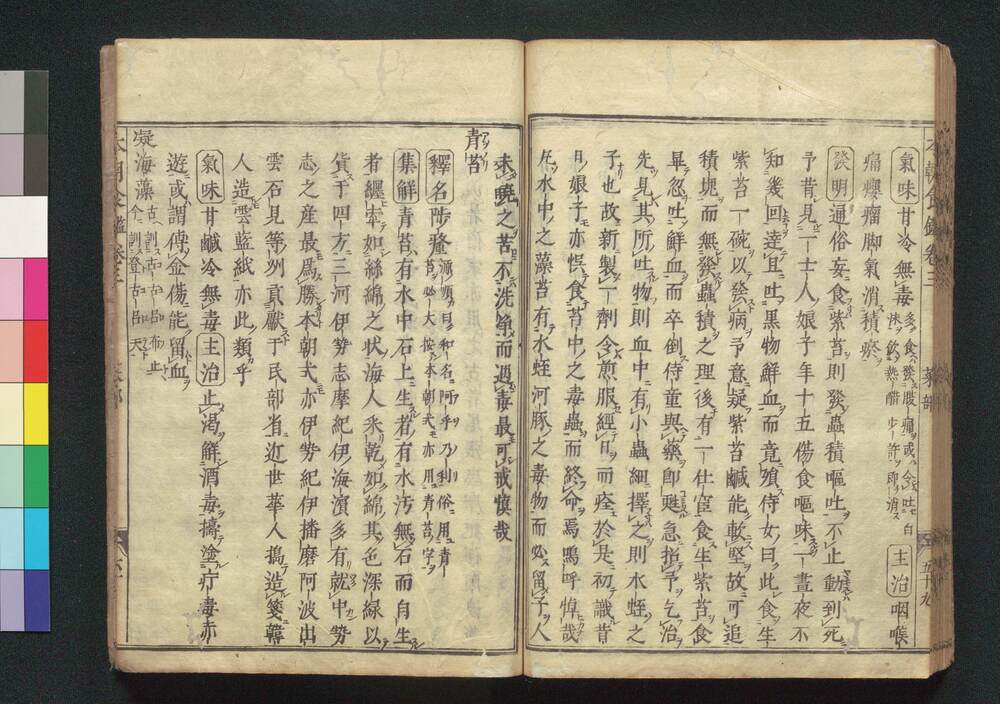 氣味甘冷無毒多食發腹痛或令吐白沫飲熱醋少許即消主治咽喉
痛癭瘤脚氣消積瘀
發明通俗妄食紫苔則發蟲積嘔吐不止動到死
予昔見一士人娘子年十五傷食嘔味一晝夜不
知幾回逆且吐黒物鮮血而竟殞侍女曰此食生
紫苔一碗以發病予意疑紫苔鹹能軟堅故可追
積塊而無發蟲積之理後有一仕官食生紫苔食
畢忽吐鮮血而卒倒侍童與藥即甦急招予乞治
先見其所吐物則血中有小蟲細擇之則水蛭之
子也故新製一劑令煎服經日而痊於是初識昔
日娘子亦悞食苔中之毒蟲而終命焉嗚呼悼哉
凡水中之藻苔有水蛭河豚之毒物而必留子人
本朝食鑑卷三 菜部 五十九
未曉之苦不洗淨而遇毒最可戒慎哉
青苔
釋名陟釐源順曰和名阿乎乃利俗用青苔必大按本朝式亦用青苔字
集解青苔有水中石上生者有水汚無石而自生
者纏牢如絲綿之状海人釆乾如綿其色深緑以
貨于四方三河伊勢志摩紀伊海濱多有就中勢
志之産最爲勝本朝式亦伊勢紀伊播磨阿波出
雲石見等州貢獻于民部省近世華人搗造箋韓
人造雲藍紙亦此類乎
氣味甘鹹冷無毒主治止渇解酒毒擣塗疔毒赤
遊或謂傅金傷能留血
凝海藻古訓古古呂布止今訓登古呂天
本朝食鑑卷三 菜部 六十